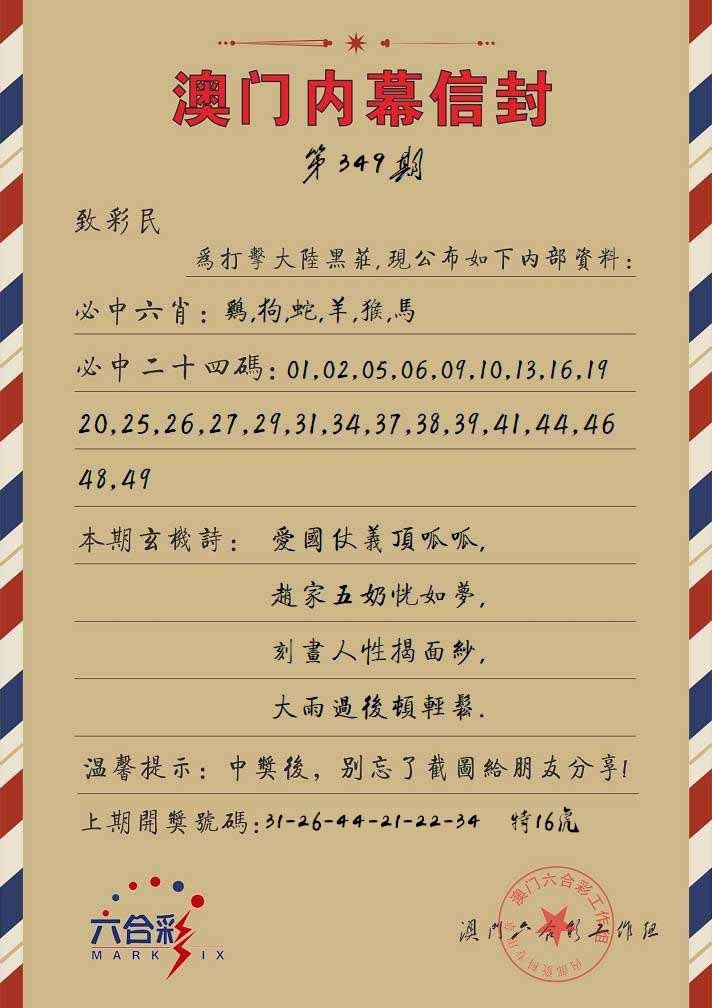 澳门内幕信封
第349期
致彩民
爲打擊大陸黑莊,現公布如下内部資料:
必中六肖:鷄,狗,蛇,羊,猴,馬
必中二十四碼:01,02,05,06,09,10,13,16,19
20,25,26,27,29,31,34,37,38,39,41,44,46
48,49
本期玄機詩: 愛國仗義頂呱呱,
趙家五奶恍如夢,
刻畫人性揭面紗,
大雨過後頓輕鬆.
温馨提示:中獎後,别忘了截圖給朋友分享!
上期開獎號碼:31-26-44-21-22-34 特16虎
六合彩
MARK SIX
澳门六合彩工作组
澳门六合彩工作组